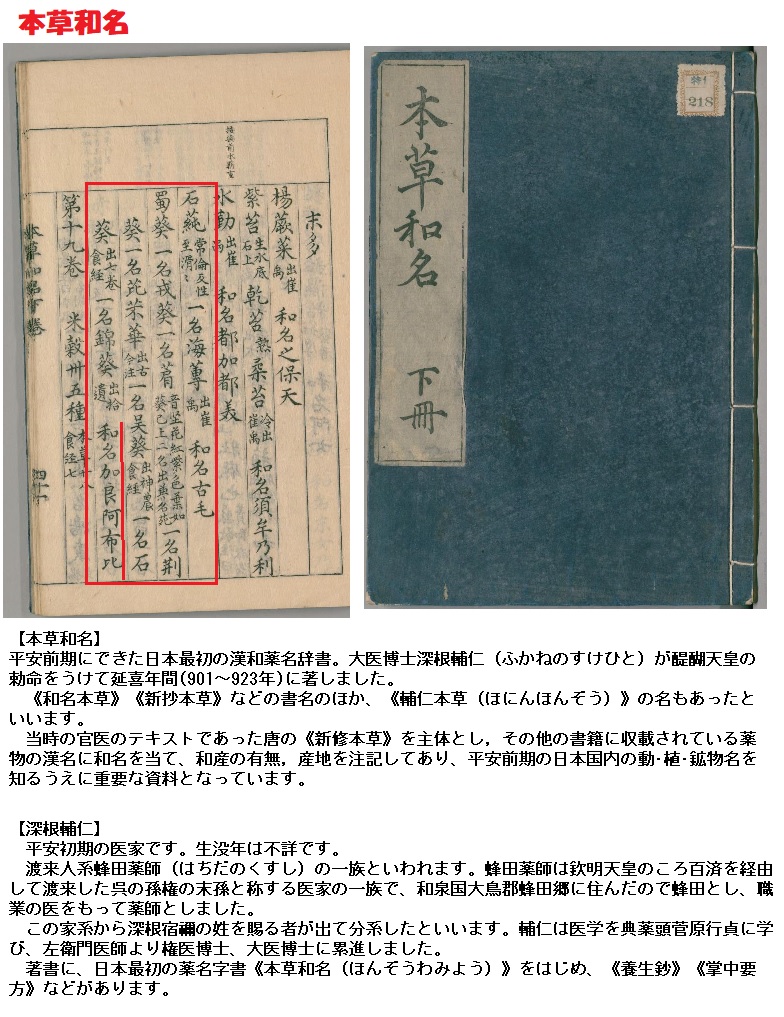 本草和名
末多
楊蕨菜出崔禹 和名之保天
紫苔生水底石上 乾苔熱 桑苔冷出崔禹 和名須牟乃利
水勤出崔禹 和名都加都美
石蓴常倫反性至滑々 一名海蓴出崔禹 和名古毛
蜀葵一名戎葵一名
一名荆
葵一名芘芣華出古今注 一名吴葵出神農食經 一名石
葵出七巻食經 一名錦葵出拾遺 和名加良阿布比
第十九巻 米穀卅五種本草廿八食經七
本草和名 下冊
特1
218
【本草和名】
平安前期にできた日本最初の漢和薬名辞書。大医博士深根輔仁（ふかねのすけひと）が醍醐天皇の
勅命をうけて延喜年間(901～923年)に著しました。
《和名本草》《新抄本草》などの書名のほか、《輔仁本草（ほにんほんぞう）》の名もあったと
いいます。
当時の官医のテキストであった唐の《新修本草》を主体とし，その他の書籍に収載されている薬
物の漢名に和名を当て、和産の有無，産地を注記してあり、平安前期の日本国内の動･植･鉱物名を
知るうえに重要な資料となっています。
【深根輔仁】
平安初期の医家です。生没年は不詳です。
渡来人系蜂田薬師（はちだのくすし）の一族といわれます。蜂田薬師は欽明天皇のころ百済を経由
して渡来した呉の孫権の末孫と称する医家の一族で、和泉国大鳥郡蜂田郷に住んだので蜂田とし、職
業の医をもって薬師としました。
この家系から深根宿禰の姓を賜る者が出て分系したといいます。輔仁は医学を典薬頭菅原行貞に学
び、左衛門医師より権医博士、大医博士に累進しました。
著書に、日本最初の薬名字書《本草和名（ほんぞうわみよう）》をはじめ、《養生鈔》《掌中要
方》などがあります。